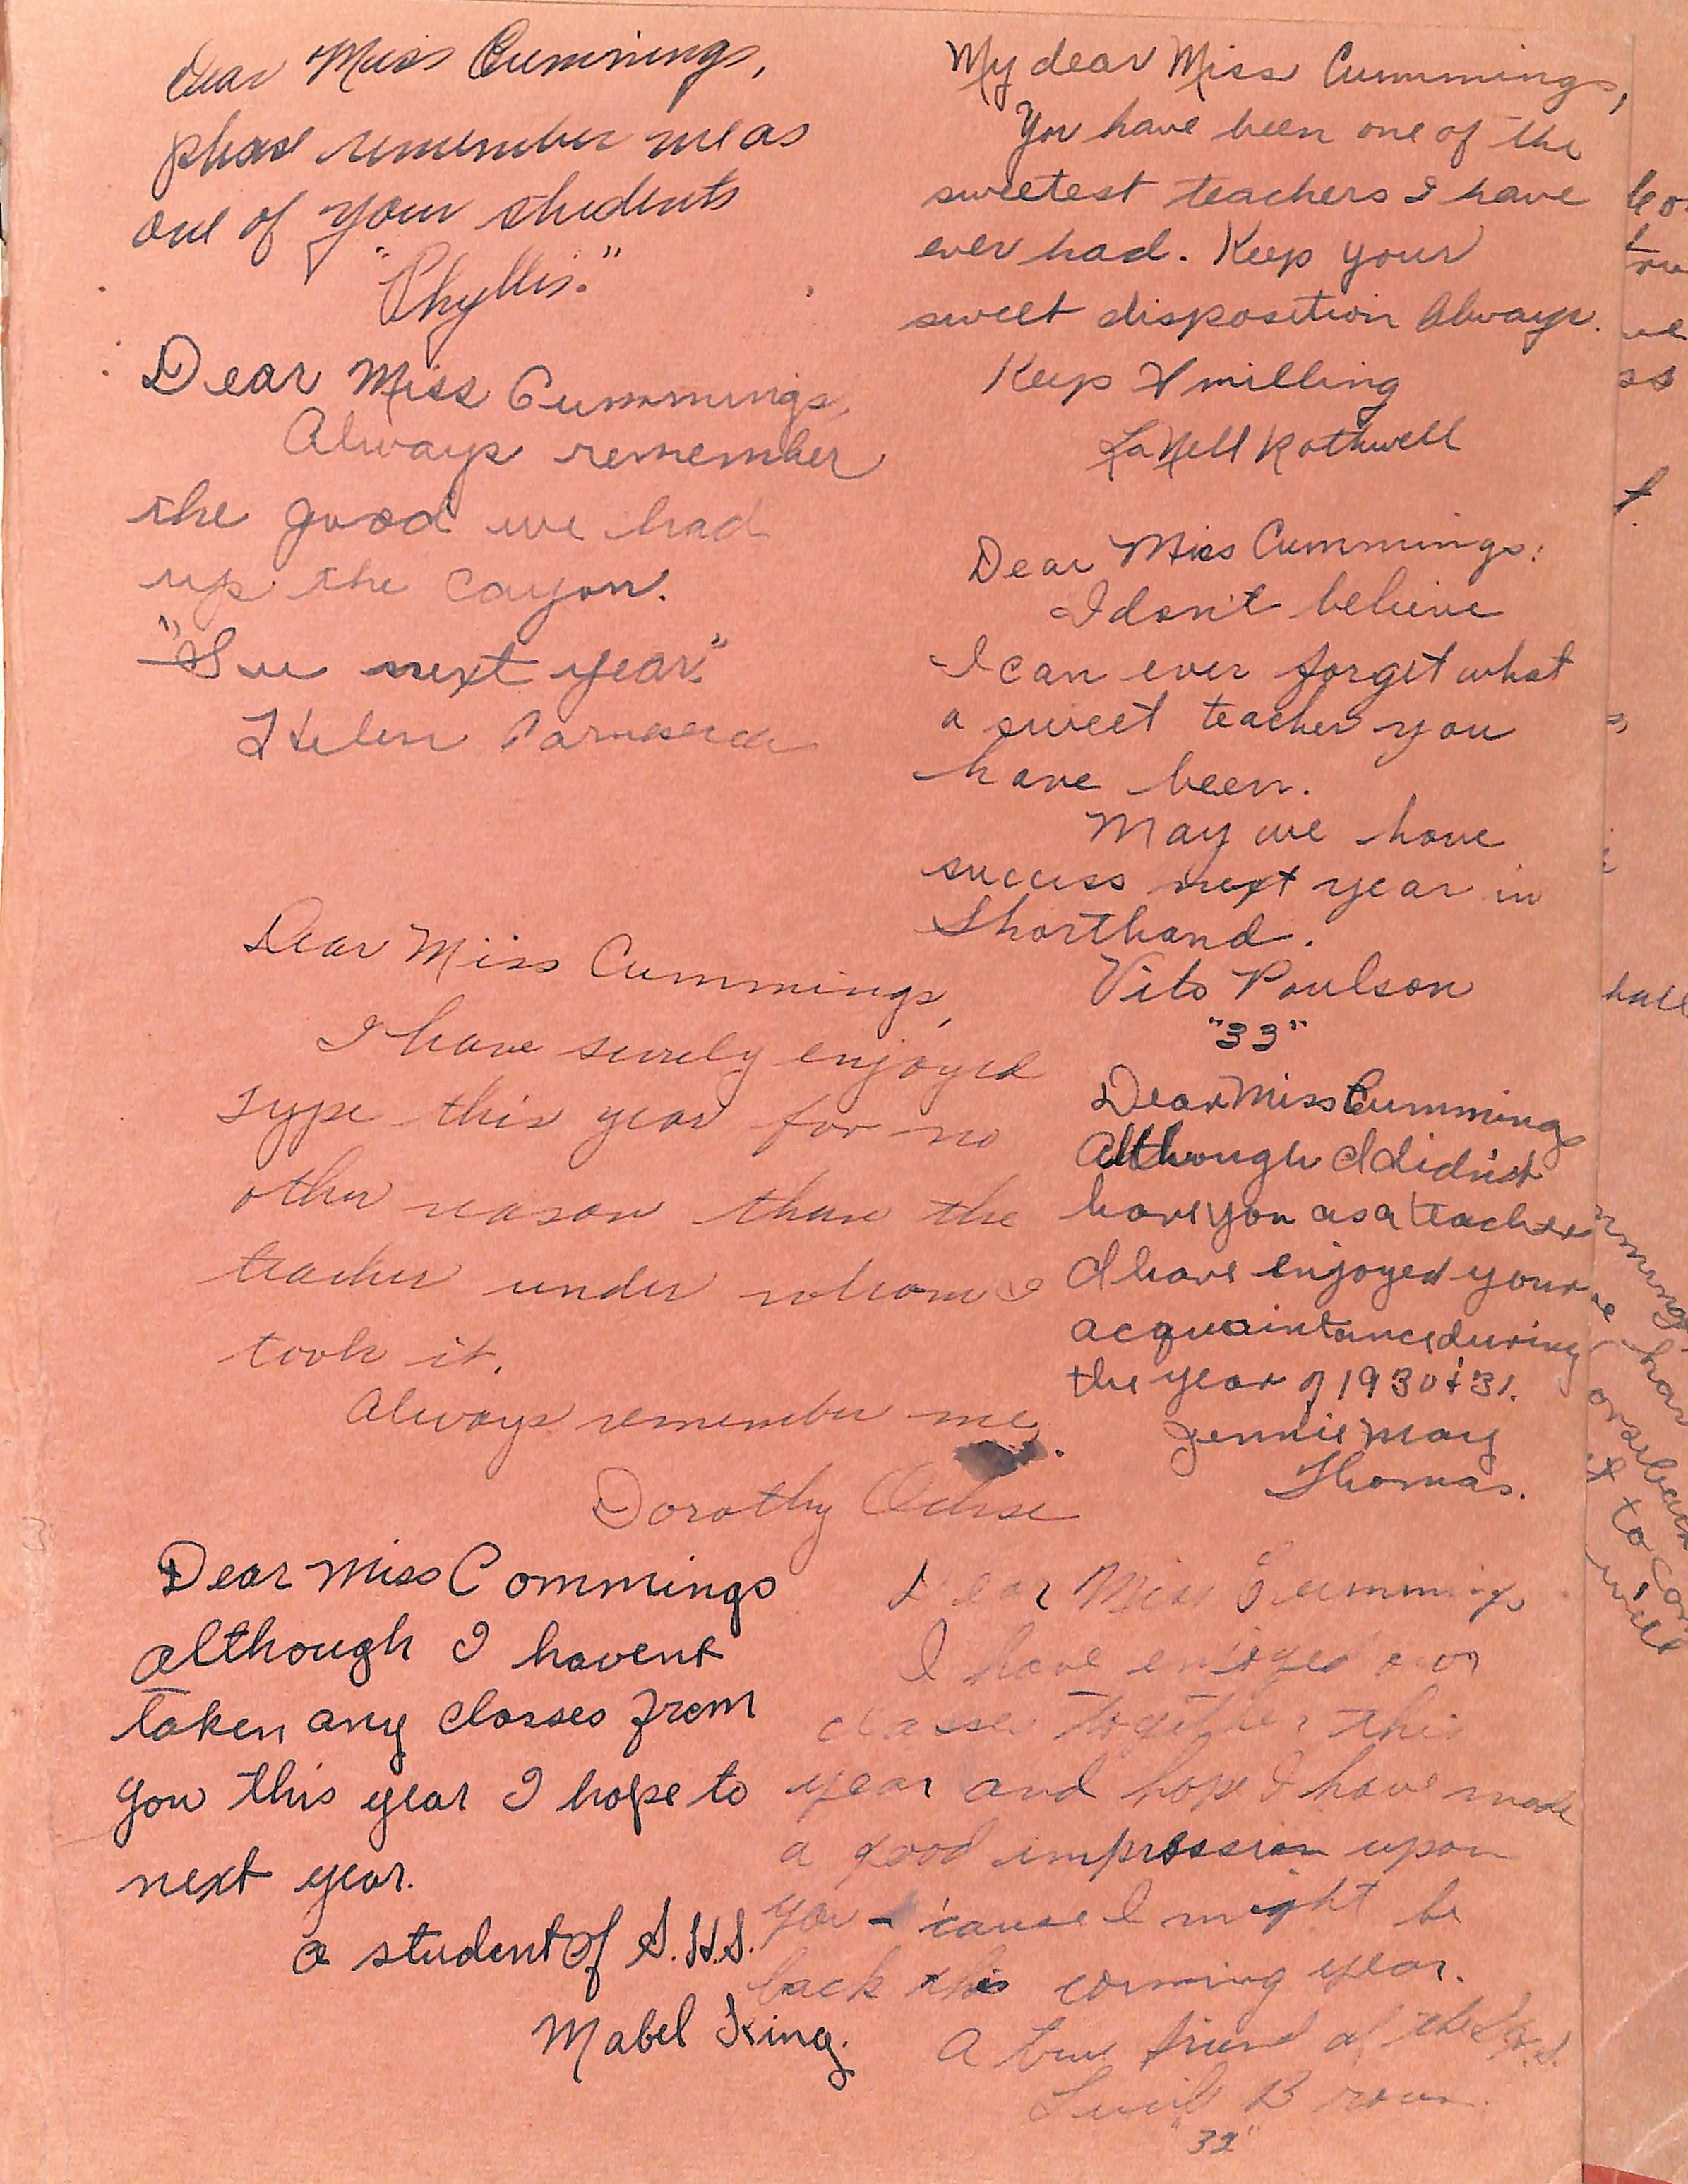 Dear Miss Cummings,
please remember me as
one of your students
"Phyllis."
Dear Miss Cummings,
Always remember
the good we had
up the cayon.
"See next year."
Helen
Dear Miss Cummings,
I have surely enjoyed
type this year for no
other reason than the
teacher under whom I
took it.
Always remember me.
Dorothy Ochse
Dear Miss Commings
although I havent
taken any classes from
you this year I hope to
next year.
a student of S.H.S.
Mabel King.
My dear Miss Cummings,
You have been one of the
sweetest teachers I have
ever had. Keep your
sweet disposition always.
Keep Smilling
LaNell Rothwell
Dear Miss Cummings:
I don't believe
I can ever forget what
a sweet teacher you
have been.
May we have
success next year in
Shorthand.
Vito Poulson
"33"
Dear Miss Cummings
Although I didn't
have you as a teacher
I have enjoyed your
acquaintance during
the year of 1930 & 31.
Jennie May
Thomas.
Dear Miss Cummings
I have enjoyed our
classes together this
year and hope I have made
a good impression upon
you - 'cause I might be
back this comming year.
A true friend of the S.H.S.
Lucile Brown
"32"